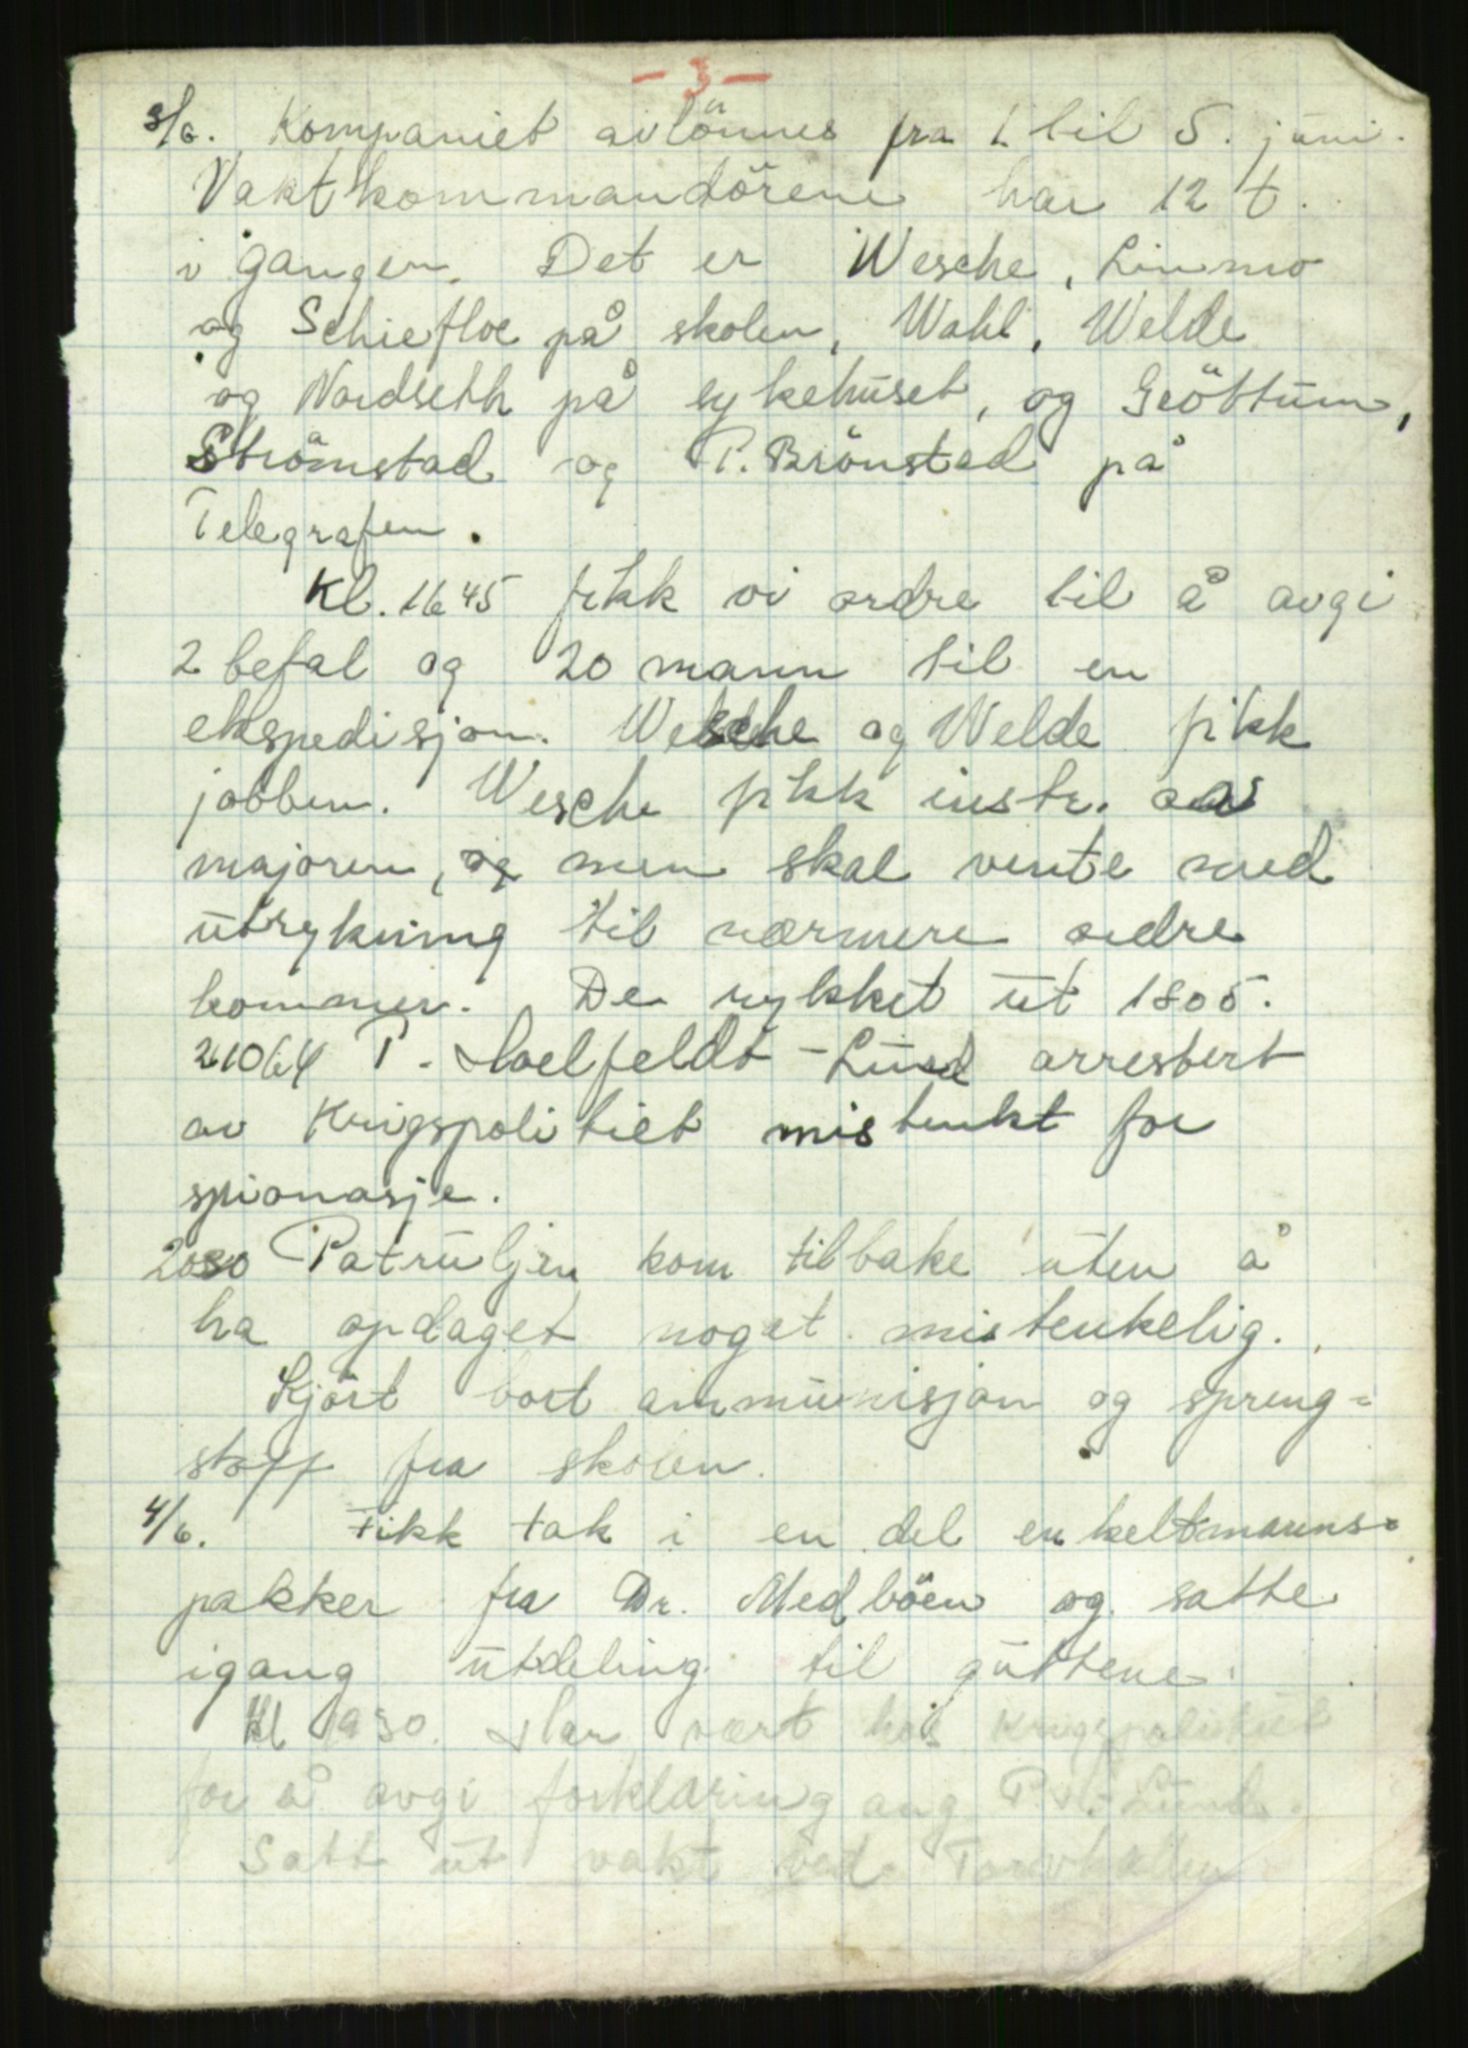 - 3 -
3/6. Kompaniet avlönnes fra 1. til 5. juni.
Vaktkommandörene har 12 t.
i gangen. Det er Wesche, Linmo
og Schiefloe på skolen, Wahl, Welde
og Nordseth på sykehuset, og Gröttum,
Strömstad og P. Brönstad på
Telegrafen.
Kl. 1645 fikk vi ordre til å avgi
2 befal og 20 mann til en
ekspedisjon. Wesche og Welde fikk
jobben. Wesche fikk instr. av
majoren, og men skal vente med
utrykning til nærmere ordre
kommer. De rykket ut 1805.
P. Hoelfeldt-Lund arrestert
av Krigspolitiet mistenkt for
spionasje.
2030 Patruljen kom tilbake uten å
ha opdaget noget mistenkelig.
Kjört bort ammunisjon og spreng=
stoff fra skolen.
4/6. Fikk tak i en del enkeltmanns=
pakker fra Dr. Medböen og satte
igang utdeling til guttene.
Kl 930. Har vært hos Krigspolitiet
for å avgi forklaring ang P. H.-Lund.
Satt ut vakt ved Torvhallen